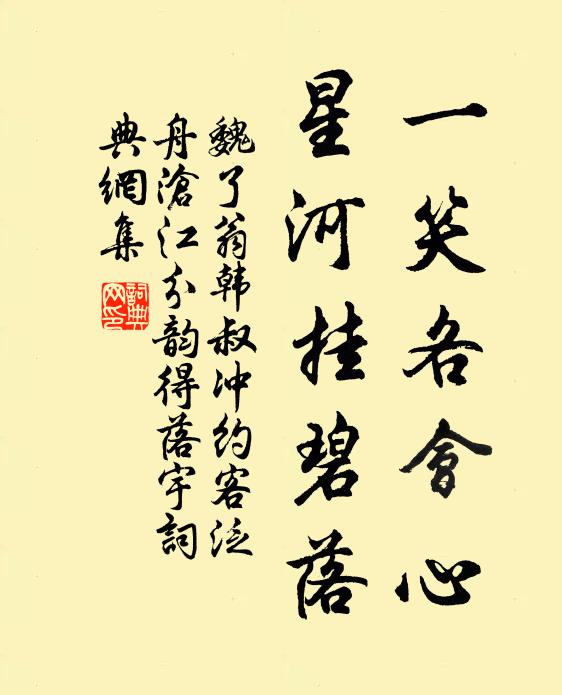 一笑各會心
星河挂碧落
魏了翁韩叔冲约客泛
舟滄江分韵得落字詞
典網集
詞典网印